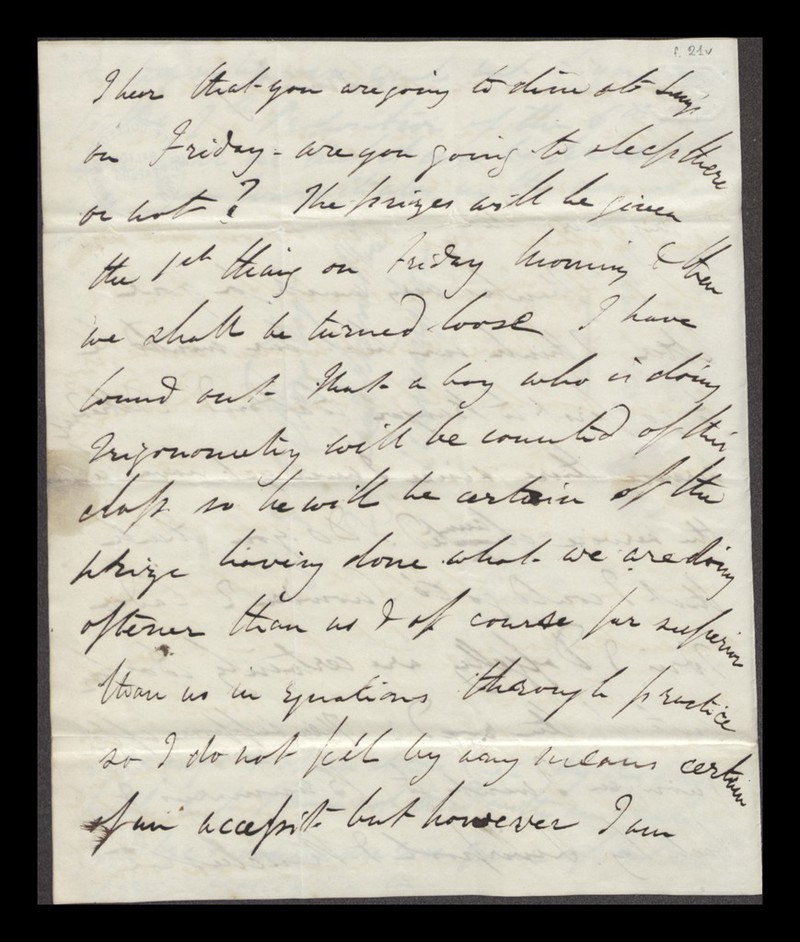 f. 21v
I hear that you are going to dine at
on Friday - are you going to sleep there
or not? The prizes will be given
the 1st thing on Friday morning & then
we shall be turned loose I have
found out that a boy who is doing
Trigonometry will be counted of this
class so he will be certain of the
prize having done what we are doing
oftener than us & of course far superior
than us in equations through practice
so I do not feel by any means certain
of an accessit but however I am